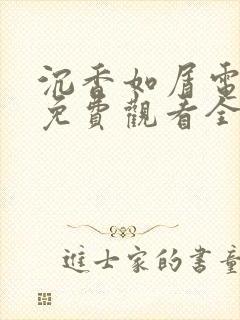 沉香如屑電
免費觀看全
進士家的書童